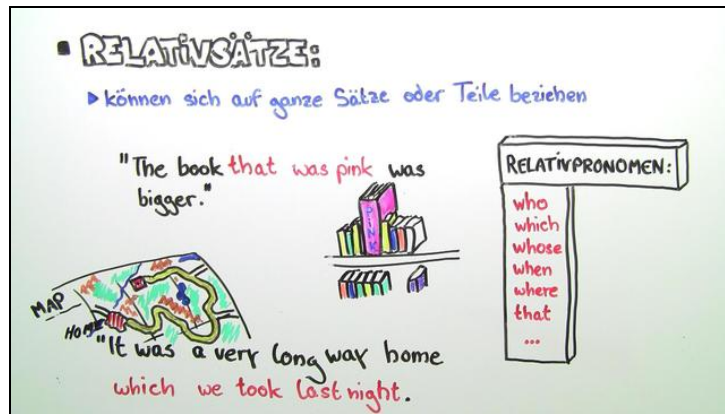 ▪ RELATIVSÄTZE:
▸ können sich auf ganze Sätze oder Teile beziehen
"The book that was pink was
bigger."
PINK
RELATIVPRONOMEN:
who
which
whose
when
where
that
...
MAP
HOME
"It was a very long way home
which we took last night.